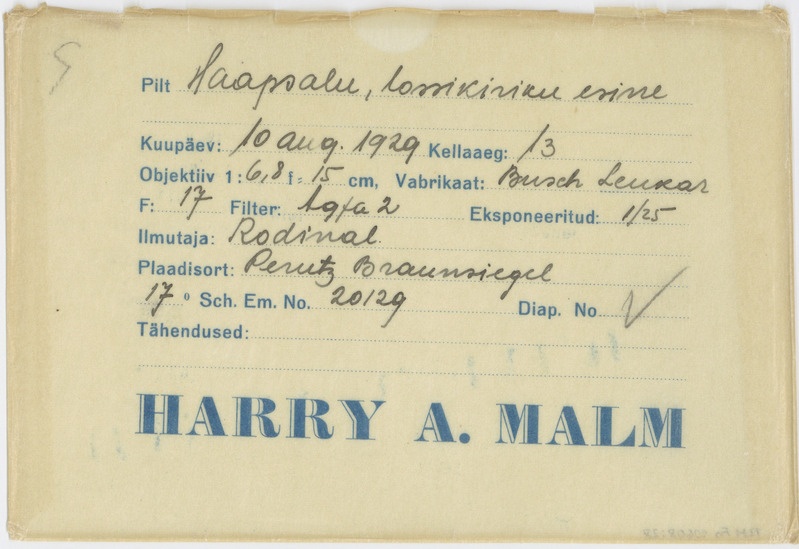 Pilt Haapsalu, lossikiriku esine
Kuupäev: 10 aug. 1929 Kellaaeg: 13
Objektiiv 1: 6,8 f = 15 cm, Vabrikaat: Busch Leukar
F: 17 Filter: Agfa 2 Eksponeeritud: 1/25
Ilmutaja: Rodinal
Plaadisort: Perutz Braunsiegel
17° Sch. Em. No. 20129 Diap. No. √
Tähendused:
HARRY A. MALM